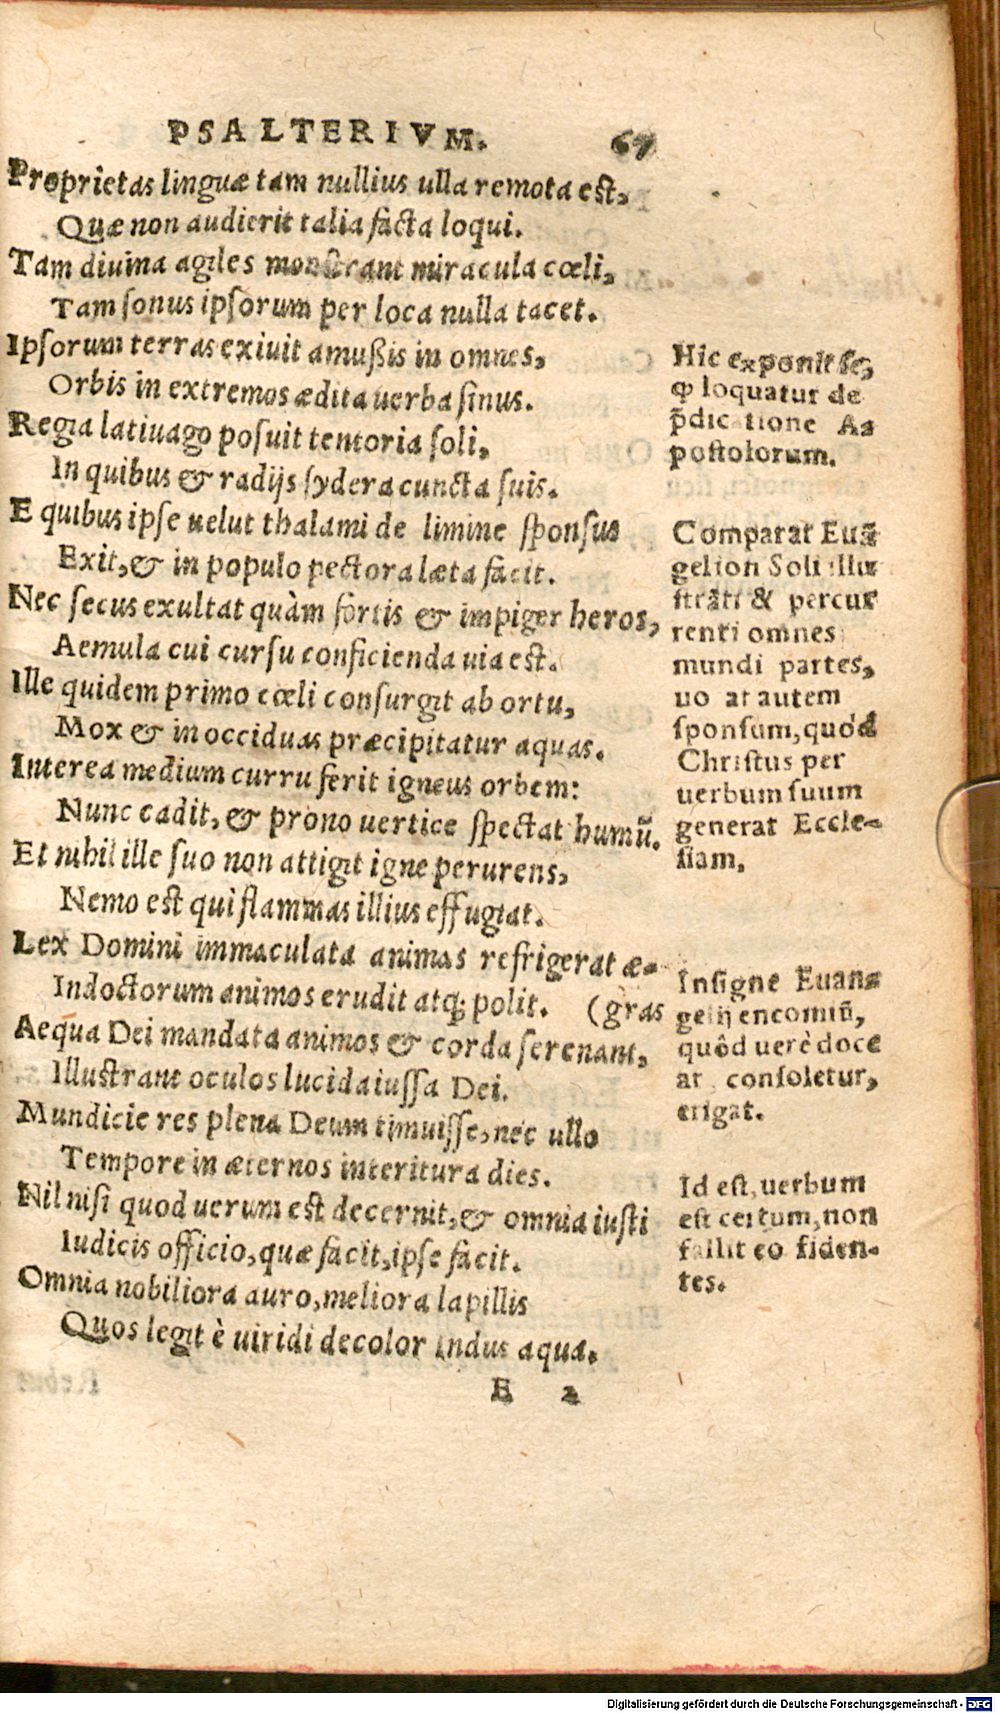 PSALTERIVM. 67
Proprietas linguæ tam nullius ulla remota est,
Quæ non audierit talia facta loqui.
Tam diuina agiles monstrant miracula cœli,
Tam sonus ipsorum per loca nulla tacet.
Ipsorum terras exiuit amußis in omnes,
Orbis in extremos ædita uerba sinus.
Regia latiuago posuit tentoria soli,
In quibus & radijs sydera cuncta suis.
E quibus ipse uelut thalami de limine sponsus
Exit, & in populo pectora læta facit.
Nec secus exultat quàm fortis & impiger heros,
Aemula cui cursu conficienda uia est.
Ille quidem primo cœli consurgit ab ortu,
Mox & in occiduas præcipitatur aquas.
Interea medium curru ferit igneus orbem:
Nunc cadit, & prono uertice spectat humū.
Et nihil ille suo non attigit igne perurens,
Nemo est qui flammas illius effugiat.
Lex Domini immaculata animas refrigerat æ-
Indoctorum animos erudit atq; polit. (gras
Aequa Dei mandata animos & corda serenant,
Illustrant oculos lucida iussa Dei.
Mundicie res plena Deum timuisse, nec ullo
Tempore in æternos interitura dies.
Nil nisi quod uerum est decernit, & omnia iusti
Iudicis officio, quæ facit, ipse facit.
Omnia nobiliora auro, meliora lapillis
Quos legit è uiridi decolor Indus aqua.
E 2
Hic exponit se,
ꝙ loquatur de
p̃dicatione A-
postolorum.
Comparat Euā
gelion Soli illu
strāti & percur
renti omnes
mundi partes,
uo at autem
sponsum, quòd
Christus per
uerbum suum
generat Eccle-
siam.
Insigne Euan-
gelij encomiū,
quôd uerè doce
at consoletur,
erigat.
Id est, uerbum
est certum, non
fallit eo fiden-
tes.
Digitalisierung gefördert durch die Deutsche Forschungsgemeinschaft - DFG